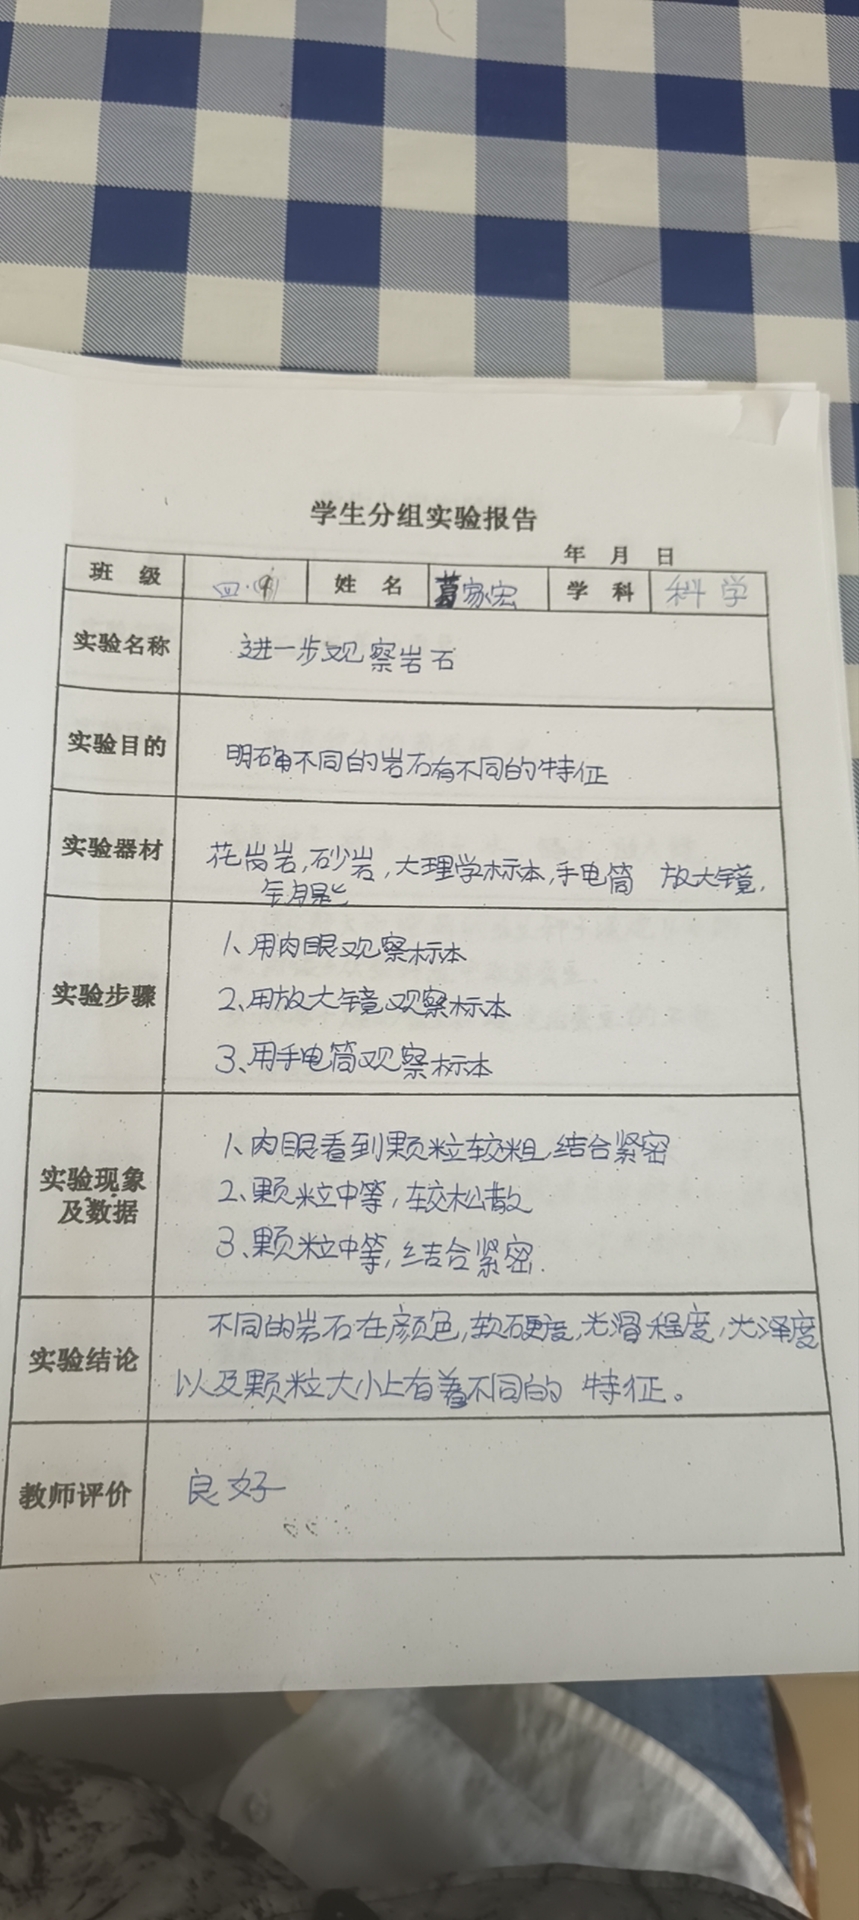 学生分组实验报告
年 月 日
班 级 四.(9) 姓 名 葛家宏 学 科 科学
实验名称 进一步观察岩石
实验目的 明确不同的岩石有不同的特征
实验器材 花岗岩,砂岩,大理学标本,手电筒 放大镜,
钥匙
实验步骤 1、用肉眼观察标本
2、用放大镜观察标本
3、用手电筒观察标本
实验现象及数据 1、肉眼看到颗粒较粗,结合紧密
2、颗粒中等,较松散
3、颗粒中等,结合紧密.
实验结论 不同的岩石在颜色,软硬度,光滑程度,光泽度
以及颗粒大小上有着不同的 特征。
教师评价 良好